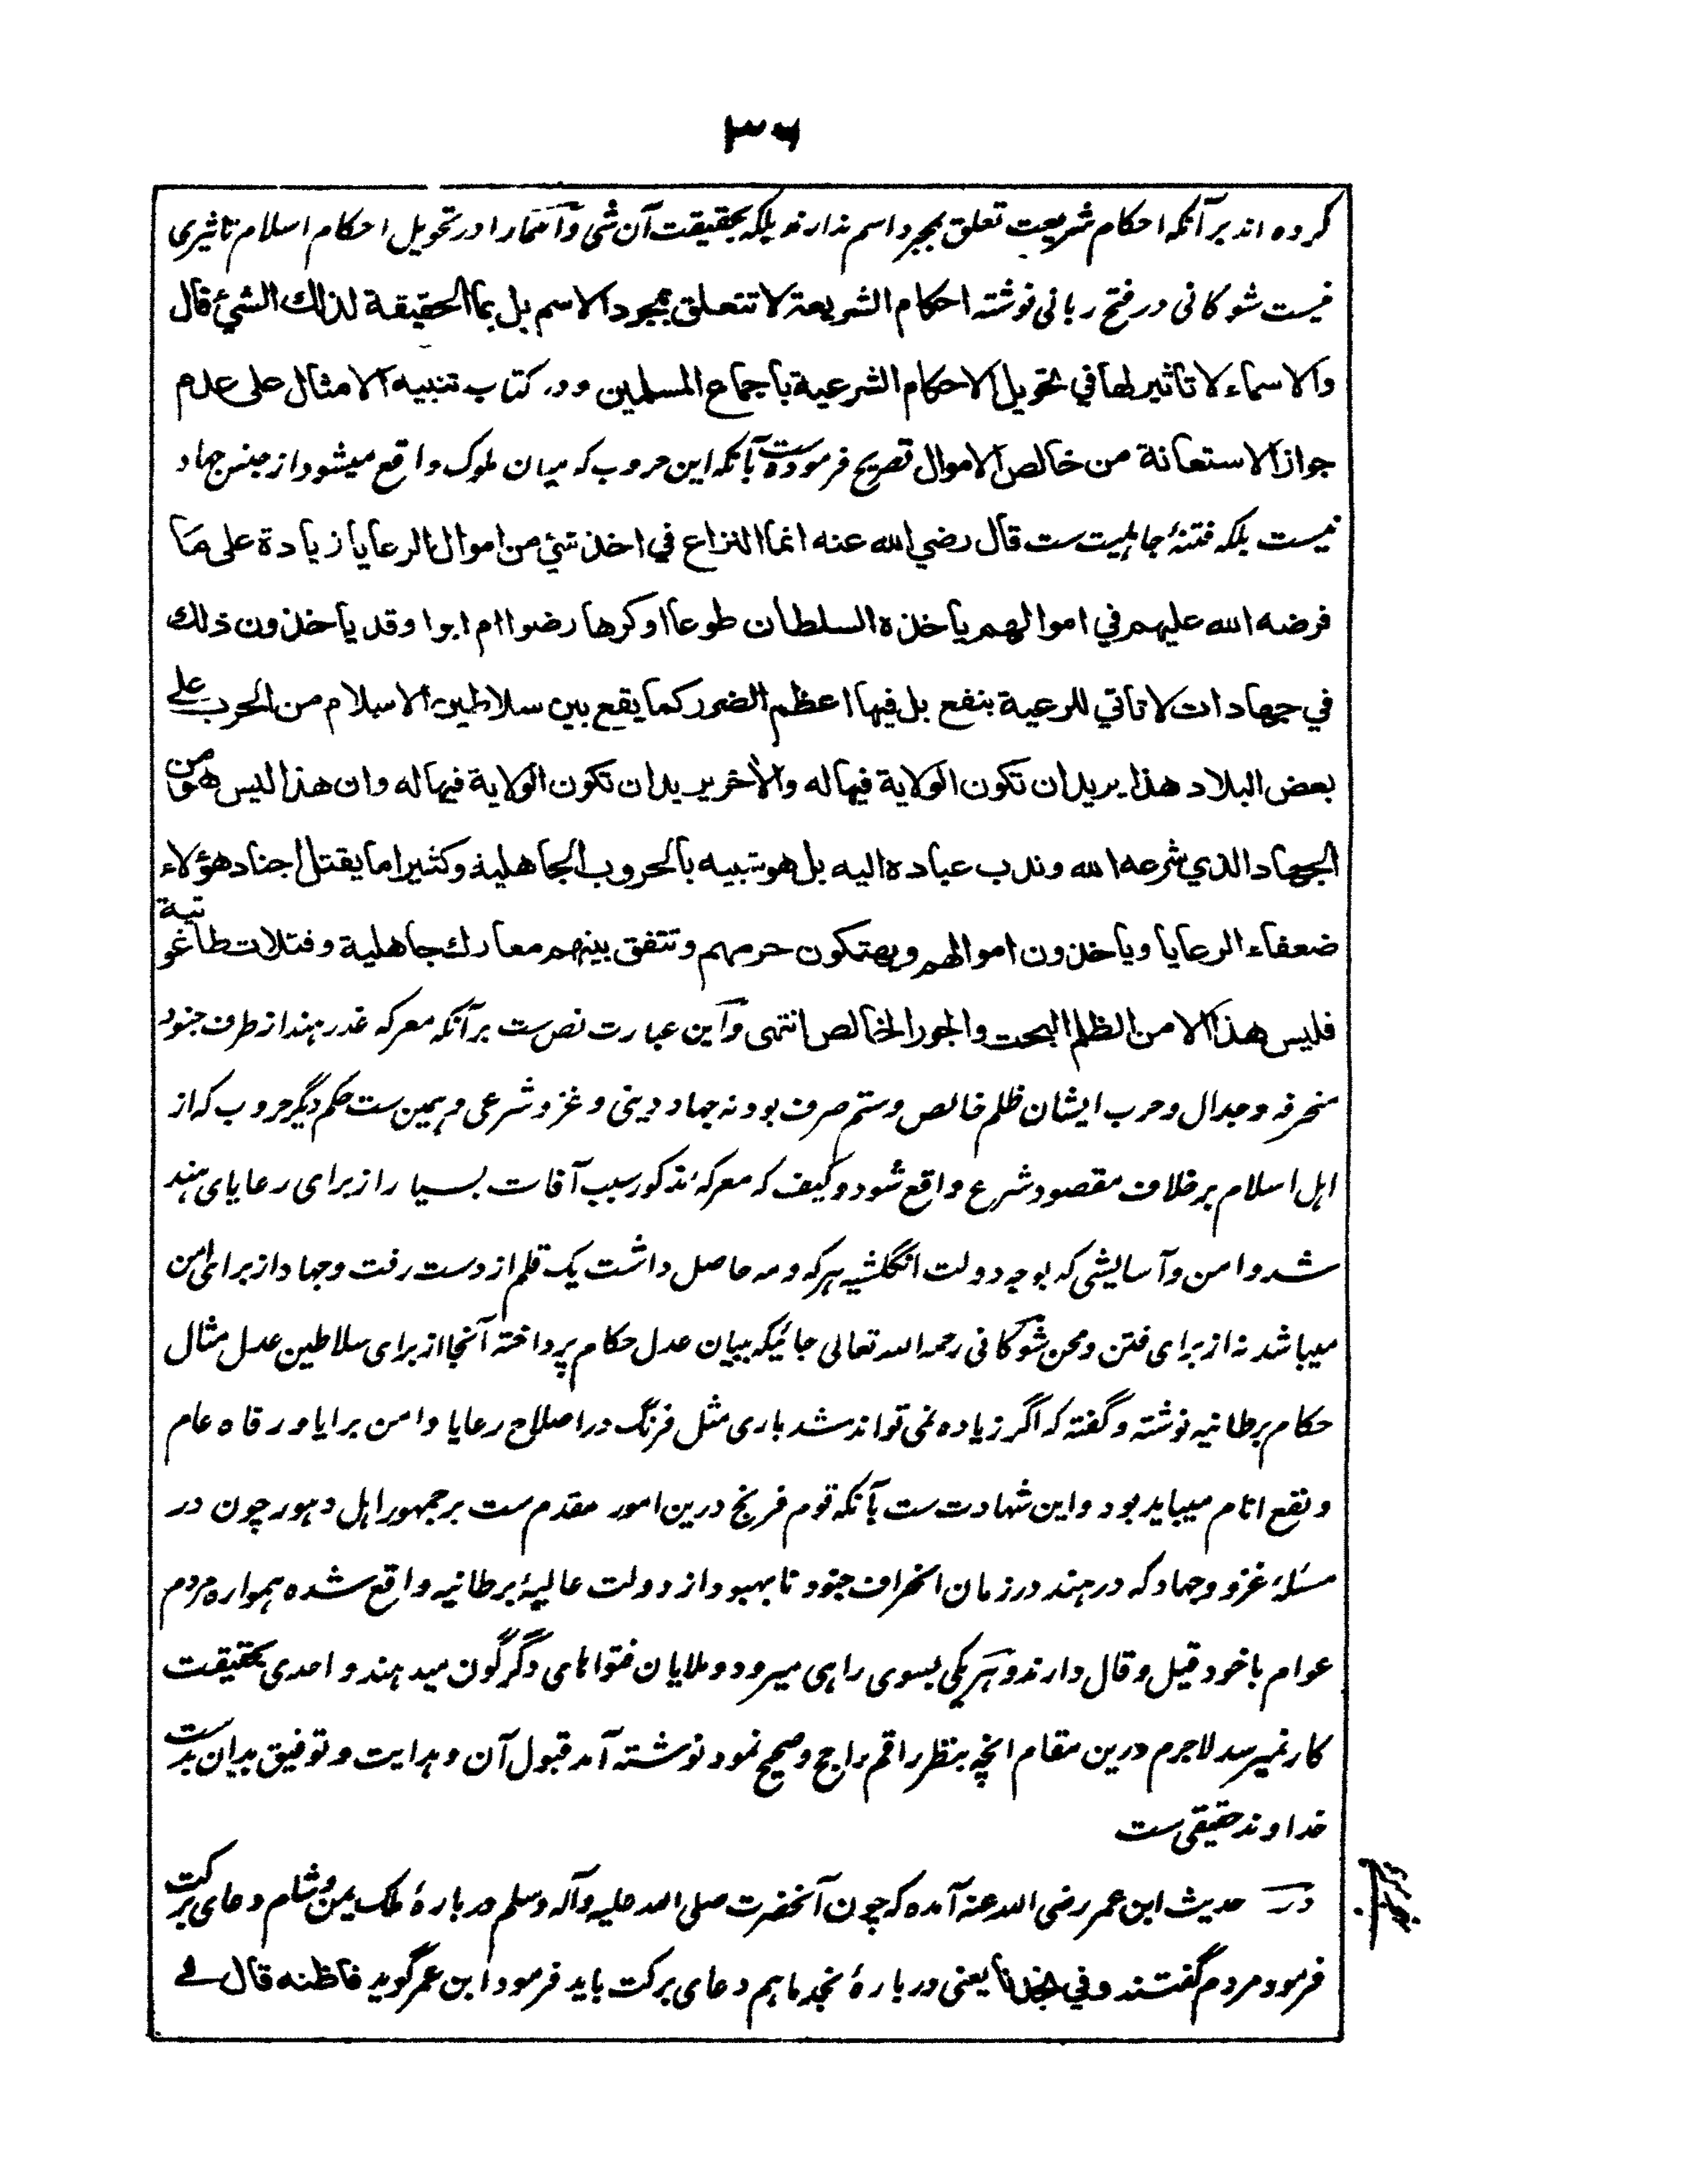 ۳۶
کرده اند برآنکه احکام شریعت تعلق بمجرد اسم ندارند بلکه بحقیقت آن شی واسما را در تحویل احکام اسلام تاثیری
نیست شوکانی در فتح ربانی نوشته احکام الشریعة لا تتعلق بمجرد الاسم بل بما الحقیقة لذلك الشيء قال
والاسماء لا تاثیر لها في تحویل الاحکام الشرعیة باجماع المسلمین ودر کتاب تنبیه الامثال علی عدم
جواز الاستعانة من خالص الاموال تصریح فرموده ست بآنکه این حروب که میان ملوک واقع میشود از جنس جهاد
نیست بلکه فتنهٔ جاهلیت ست قال رضي الله عنه انما النزاع في اخذ شيء من اموال الرعایا زیادة علی ما
فرضه الله علیهم في اموالهم یاخذه السلطان طوعا او کرها رضوا ام ابوا وقد یاخذون ذلك
في جهادات لا تاتي للرعیة بنفع بل فیها اعظم الضرر کما یقع بین سلاطین الاسلام من الحرب علی
بعض البلاد هذا یرید ان تکون الولایة فیها له والآخر یرید ان تکون الولایة فیها له وان هذا لیس هو من
الجهاد الذي شرعه الله وندب عباده الیه بل هو شبیه بالحروب الجاهلیة وکثیرا ما یقتل اجناد هؤلاء
ضعفاء الرعایا ویاخذون اموالهم ویهتکون حرمهم وتتفق بینهم معارك جاهلیة وفتلات طاغوتیة
فلیس هذا الا من الظلم البحت والجور الخالص انتهی واین عبارت نص ست برآنکه معرکه غدر هند از طرف جنود
منحرفه وجدال وحرب ایشان ظلم خالص وستم صرف بود نه جهاد دینی وغزو شرعی وهمین ست حکم دیگر حروب که از
اهل اسلام برخلاف مقصود شرع واقع شود وکیف که معرکهٔ مذکور سبب آفات بسیار از برای رعایای هند
شد وامن وآسایشی که بوجه دولت انگلشیه هرکه ومه حاصل داشت یک قلم از دست رفت وجهاد از برای امن
میباشد نه از برای فتن ومحن شوکانی رحمه الله تعالی جائیکه ببیان عدل حکام پرداخته آنجا از برای سلاطین عدل مثال
حکام برطانیه نوشته وگفته که اگر زیاده نمی تواند شد باری مثل فرنگ در اصلاح رعایا وامن برایا ورفاه عام
ونفع انام میباید بود واین شهادت ست بآنکه قوم فرنج درین امور مقدم ست بر جمهور اهل دهور چون در
مسئلهٔ غزو وجهاد که در هند در زمان انحراف جنود نابهبود از دولت عالیهٔ برطانیه واقع شده همواره مردم
عوام باخود قیل وقال دارند وهر یکی بسوی راهی میرود وملایان فتواهای دگرگون میدهند واحدی بحقیقت
کار نمیرسد لاجرم درین مقام انچه بنظر راقم راجح وصحیح نمود نوشته آمد قبول آن وهدایت وتوفیق بدان بدست
خداوند حقیقی ست
در حدیث ابن عمر رضی الله عنه آمده که چون آنحضرت صلی الله علیه وآله وسلم دربارهٔ ملک یمن وشام دعای برکت
فرمود مردم گفتند وفي نجدنا یعنی دربارهٔ نجد ما هم دعای برکت باید فرمود ابن عمر گوید فاظنه قال في